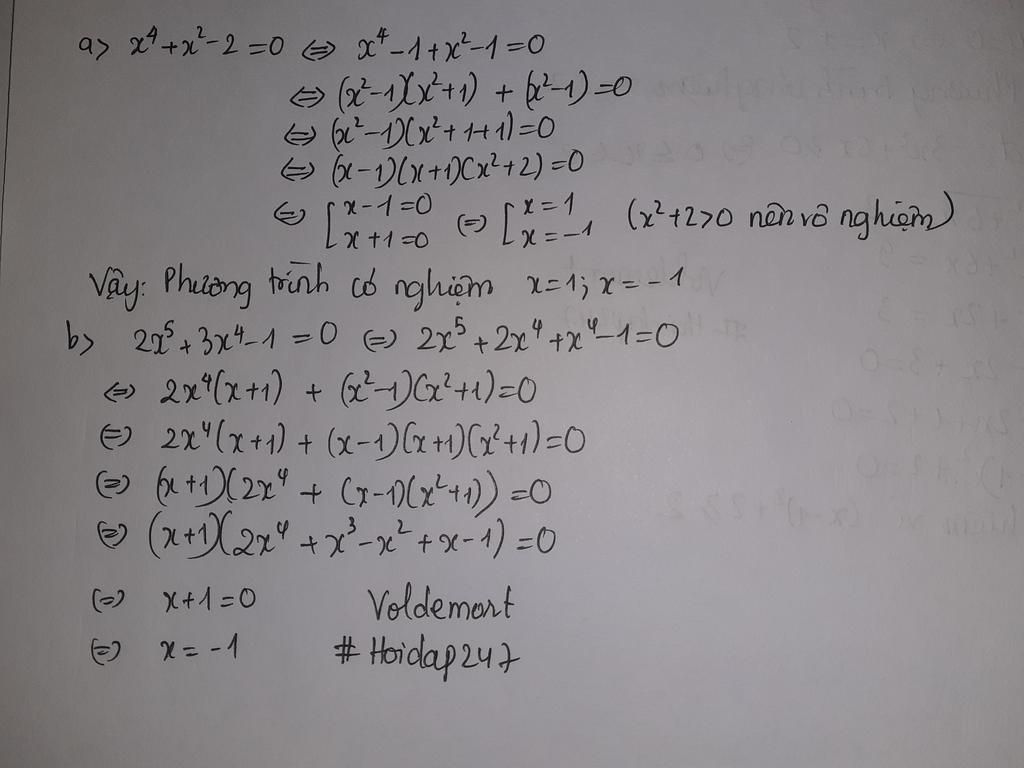 a> x⁴ + x² - 2 = 0 ⇔ x⁴ - 1 + x² - 1 = 0
⇔ (x² - 1)(x² + 1) + (x² - 1) = 0
⇔ (x² - 1)(x² + 1 + 1) = 0
⇔ (x - 1)(x + 1)(x² + 2) = 0
⇔ [x - 1 = 0 ⇔ [x = 1 (x² + 2 > 0 nên vô nghiệm)
x + 1 = 0 x = -1
Vậy: Phương trình có nghiệm x = 1; x = -1
b> 2x⁵ + 3x⁴ - 1 = 0 ⇔ 2x⁵ + 2x⁴ + x⁴ - 1 = 0
⇔ 2x⁴(x + 1) + (x² - 1)(x² + 1) = 0
⇔ 2x⁴(x + 1) + (x - 1)(x + 1)(x² + 1) = 0
⇔ (x + 1)(2x⁴ + (x - 1)(x² + 1)) = 0
⇔ (x + 1)(2x⁴ + x³ - x² + x - 1) = 0
⇔ x + 1 = 0 Voldemort
⇔ x = -1 # Hoidap247